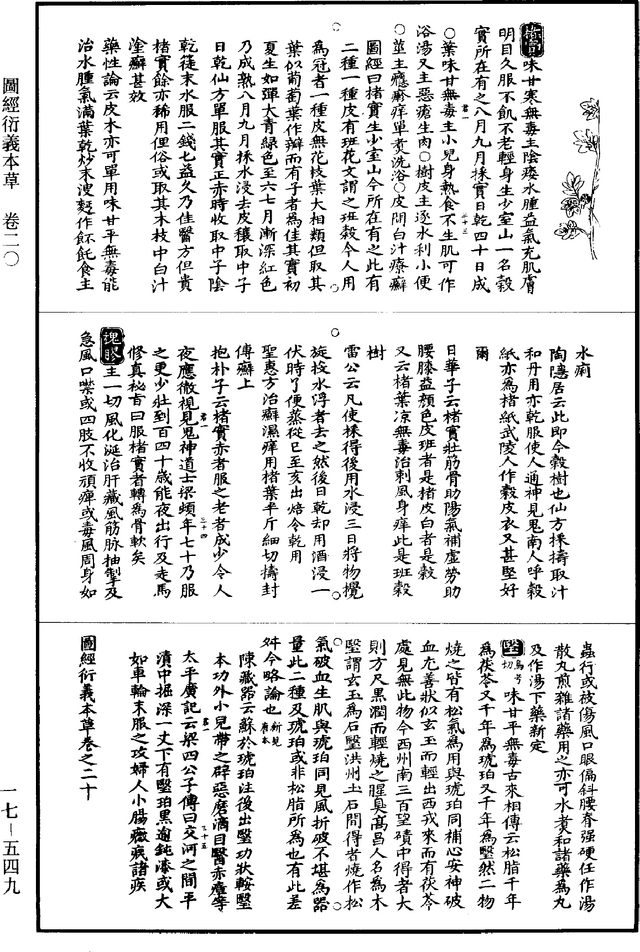 楮實味甘寒無毒主陰痿水腫益氣充肌膚
明目久服不飢不老輕身生少室山一名穀
實所在有之八月九月採實日乾四十日成
○葉味甘無毒主小兒身熱食不生肌可作
浴湯又主惡瘡生肉○樹皮主逐水利小便
○莖主癮𤺋痒單煮洗浴○皮間白汁療癬
圖經曰楮實生少室山今所在有之此有
二種一種皮有班花文謂之班穀今人用
為冠者一種皮無花枝葉大相類但取其
葉似葡萄葉作瓣而有子者為佳其實初
夏生如彈大青綠色至六七月漸深紅色
乃成熟八月九月採水浸去皮穰取中子
日乾仙方單服其實正赤時收取中子陰
乾篩末水服二錢匕益久乃佳醫方但貴
楮實餘亦稀用但俗或取其木枝中白汁
塗癬甚效
藥性論云皮木亦可單用味甘平無毒能
治水腫氣滿葉乾炒末溲麪作飥飥食主
水痢
陶隱居云此即今榖樹也仙方採擣取汁
和丹用亦乾服使人通神見鬼南人呼榖
紙亦為楮紙武陵人作榖皮衣又甚堅好
爾
日華子云楮實壯筋骨助陽氣補虛勞助
腰膝益顏色皮班者是楮皮白者是榖
又云楮葉涼無毒治刺風身痒此是班榖
樹
雷公云凡使採得後用水浸三日將物攪
旋投水浮者去之然後日乾却用酒浸一
伏時了便蒸從巳至亥出焙令乾用
聖惠方治癬濕痒用楮葉半斤細切擣封
傅癬上
抱朴子云楮實赤者服之老者成少令人
夜應徹視見鬼神道士梁頓年七十乃服
之更少壯到百四十歲能夜出行及走馬
修真秘旨曰服楮實者轉為骨軟矣
魂眼主一切風化涎治肝臟風筋脉抽掣及
急風口噤或四肢不收頑痺或毒風周身如
蟲行或被傷風口眼偏斜腰脊强硬任作湯
散丸煎雜諸藥用之亦可水煮和諸藥為丸
及作湯下藥新定
堅烏兮切味甘平無毒古來相傳云松脂千年
為茯苓又千年為琥珀又千年為瑿然二物
燒之皆有松氣為用與琥珀同補心安神破
血尤善狀似玄玉而輕出西戎來而有茯苓
處見無此物今西州南三百望磧中得者大
則方尺黑潤而輕燒之腥臭高昌人名為木
瑿謂玄玉為石瑿洪州土石間得者燒作松
氣破血生肌與琥珀同見風折破不堪為器
量此二種及琥珀或非松脂所為也有此差
舛今略論也新見唐本
陳藏器云蘇於琥珀注後出瑿功狀按瑿
本功外小兒帶之辟惡磨滴目翳赤瘴等
太平廣記云梁四公子傳曰交河之間平
漬中掘深一丈下有瑿珀黑逾鈍漆或大
如車輪末服之攻婦人小腸癥瘕諸疾
圖經衍義本草卷之二十
圖經衍義本草　卷二〇
一七－五四九